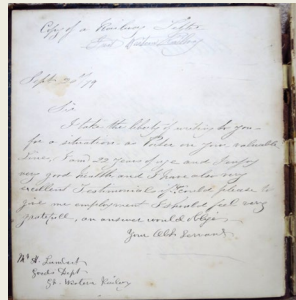 Copy of a Railway Letter
Sept. 24th /79
Sir
I take the liberty of writing to you
for a situation as Porter on your valuable
Line, I am 22 years of age and I enjoy
very good health and I have also very
excellent Testimonials if could please to
give me employment I should feel very
gratefull, an answer would oblige
Your Obt. Servant
Goods Dept
Gt. Western Railway